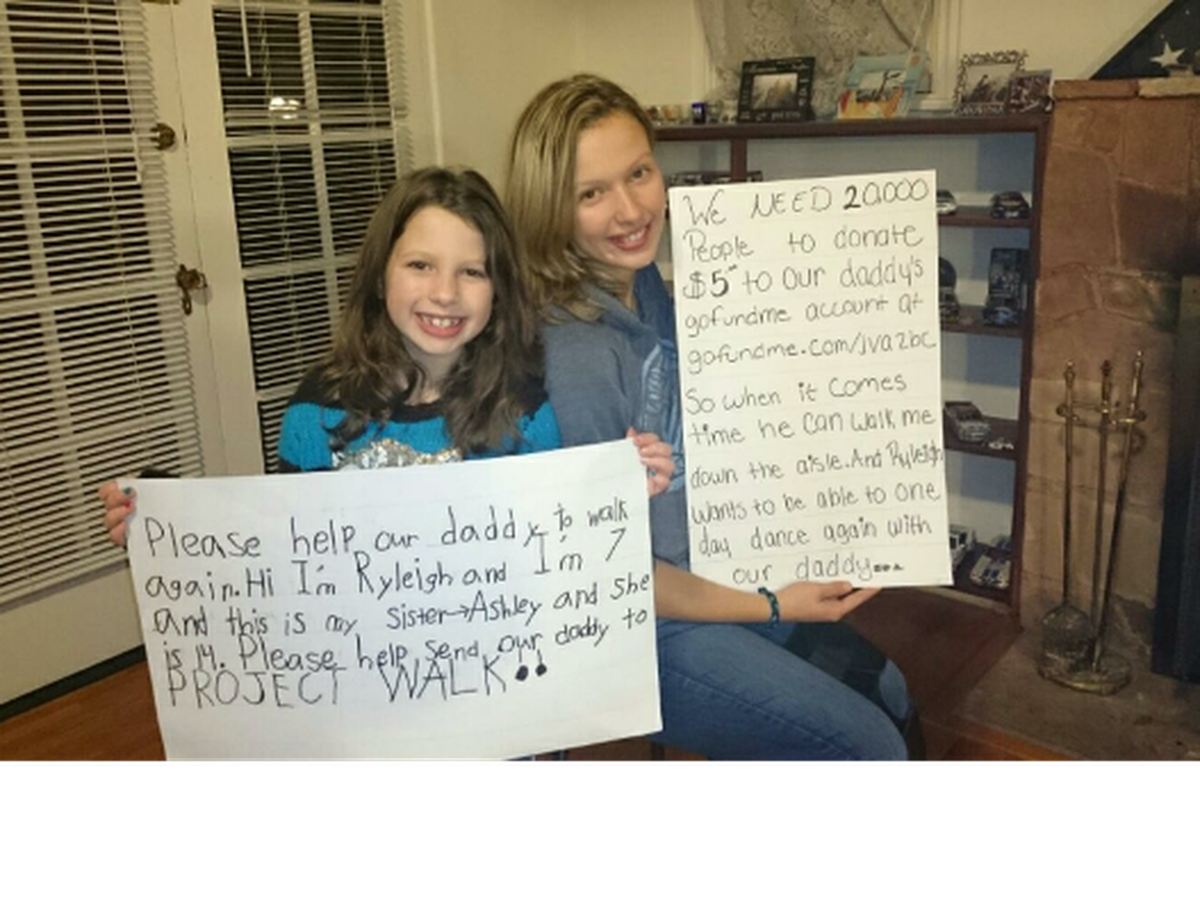 Please help our daddy to walk
again. Hi I'm Ryleigh and I'm 7
And this is my sister→Ashley and She
is 14. Please help send our daddy to
PROJECT WALK!!
We NEED 20,000
People to donate
$5 to our daddy's
gofundme account at
gofundme.com/jva2bc
So when it comes
time he can walk me
down the aisle. And Ryleigh
wants to be able to one
day dance again with
our daddy...